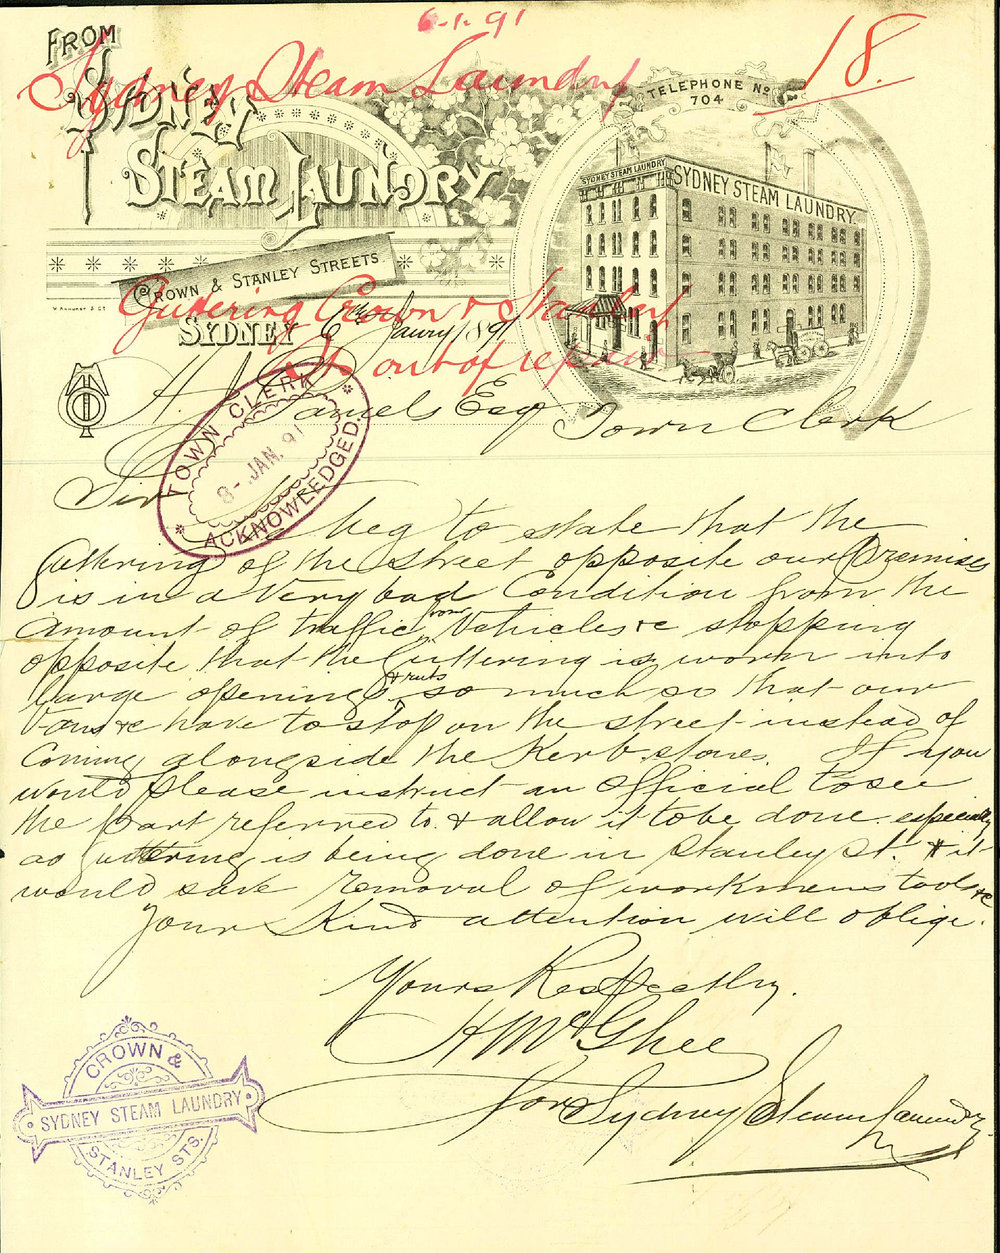 6.1.91
18.
Sydney Steam Laundry
FROM
SYDNEY
STEAM LAUNDRY
TELEPHONE No
704
SYDNEY STEAM LAUNDRY
SYDNEY STEAM LAUNDRY
CROWN & STANLEY STREETS.
Guttering Crown & Stanley
St out of repair
SYDNEY 6th Jany 1891
H. Daniels Esq Town Clerk
TOWN CLERK
8- JAN. 91
ACKNOWLEDGED.
Sir
I beg to state that the
guttering of the street opposite our Premises
is in a Very bad Condition from the
amount of traffic from Vehicles &c stopping
opposite that the Guttering is worn into
large openings & ruts so much so that our
Vans &c have to stop on the street instead of
Coming alongside the Kerb stones. If you
would Please instruct an Official to see
the part referred to & allow it to be done especially
as guttering is being done in Stanley St. & it
would save removal of workmens tools &c
Your Kind attention will oblige.
Yours Respectfully.
H McGhee
For Sydney Steam Laundry
CROWN &
SYDNEY STEAM LAUNDRY
STANLEY STS.